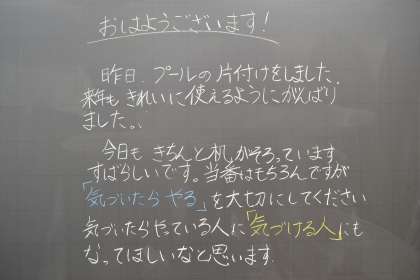 おはようございます!
昨日、プールの片付けをしました。
来年も きれいに使えるようにがんばり
ました。
今日も きちんと机がそろっています
すばらしいです。当番はもちろんですが
「気づいたら やる」を大切にしてください
気づいたらやっている人に「気づける人」にも
なってほしいなと思います.